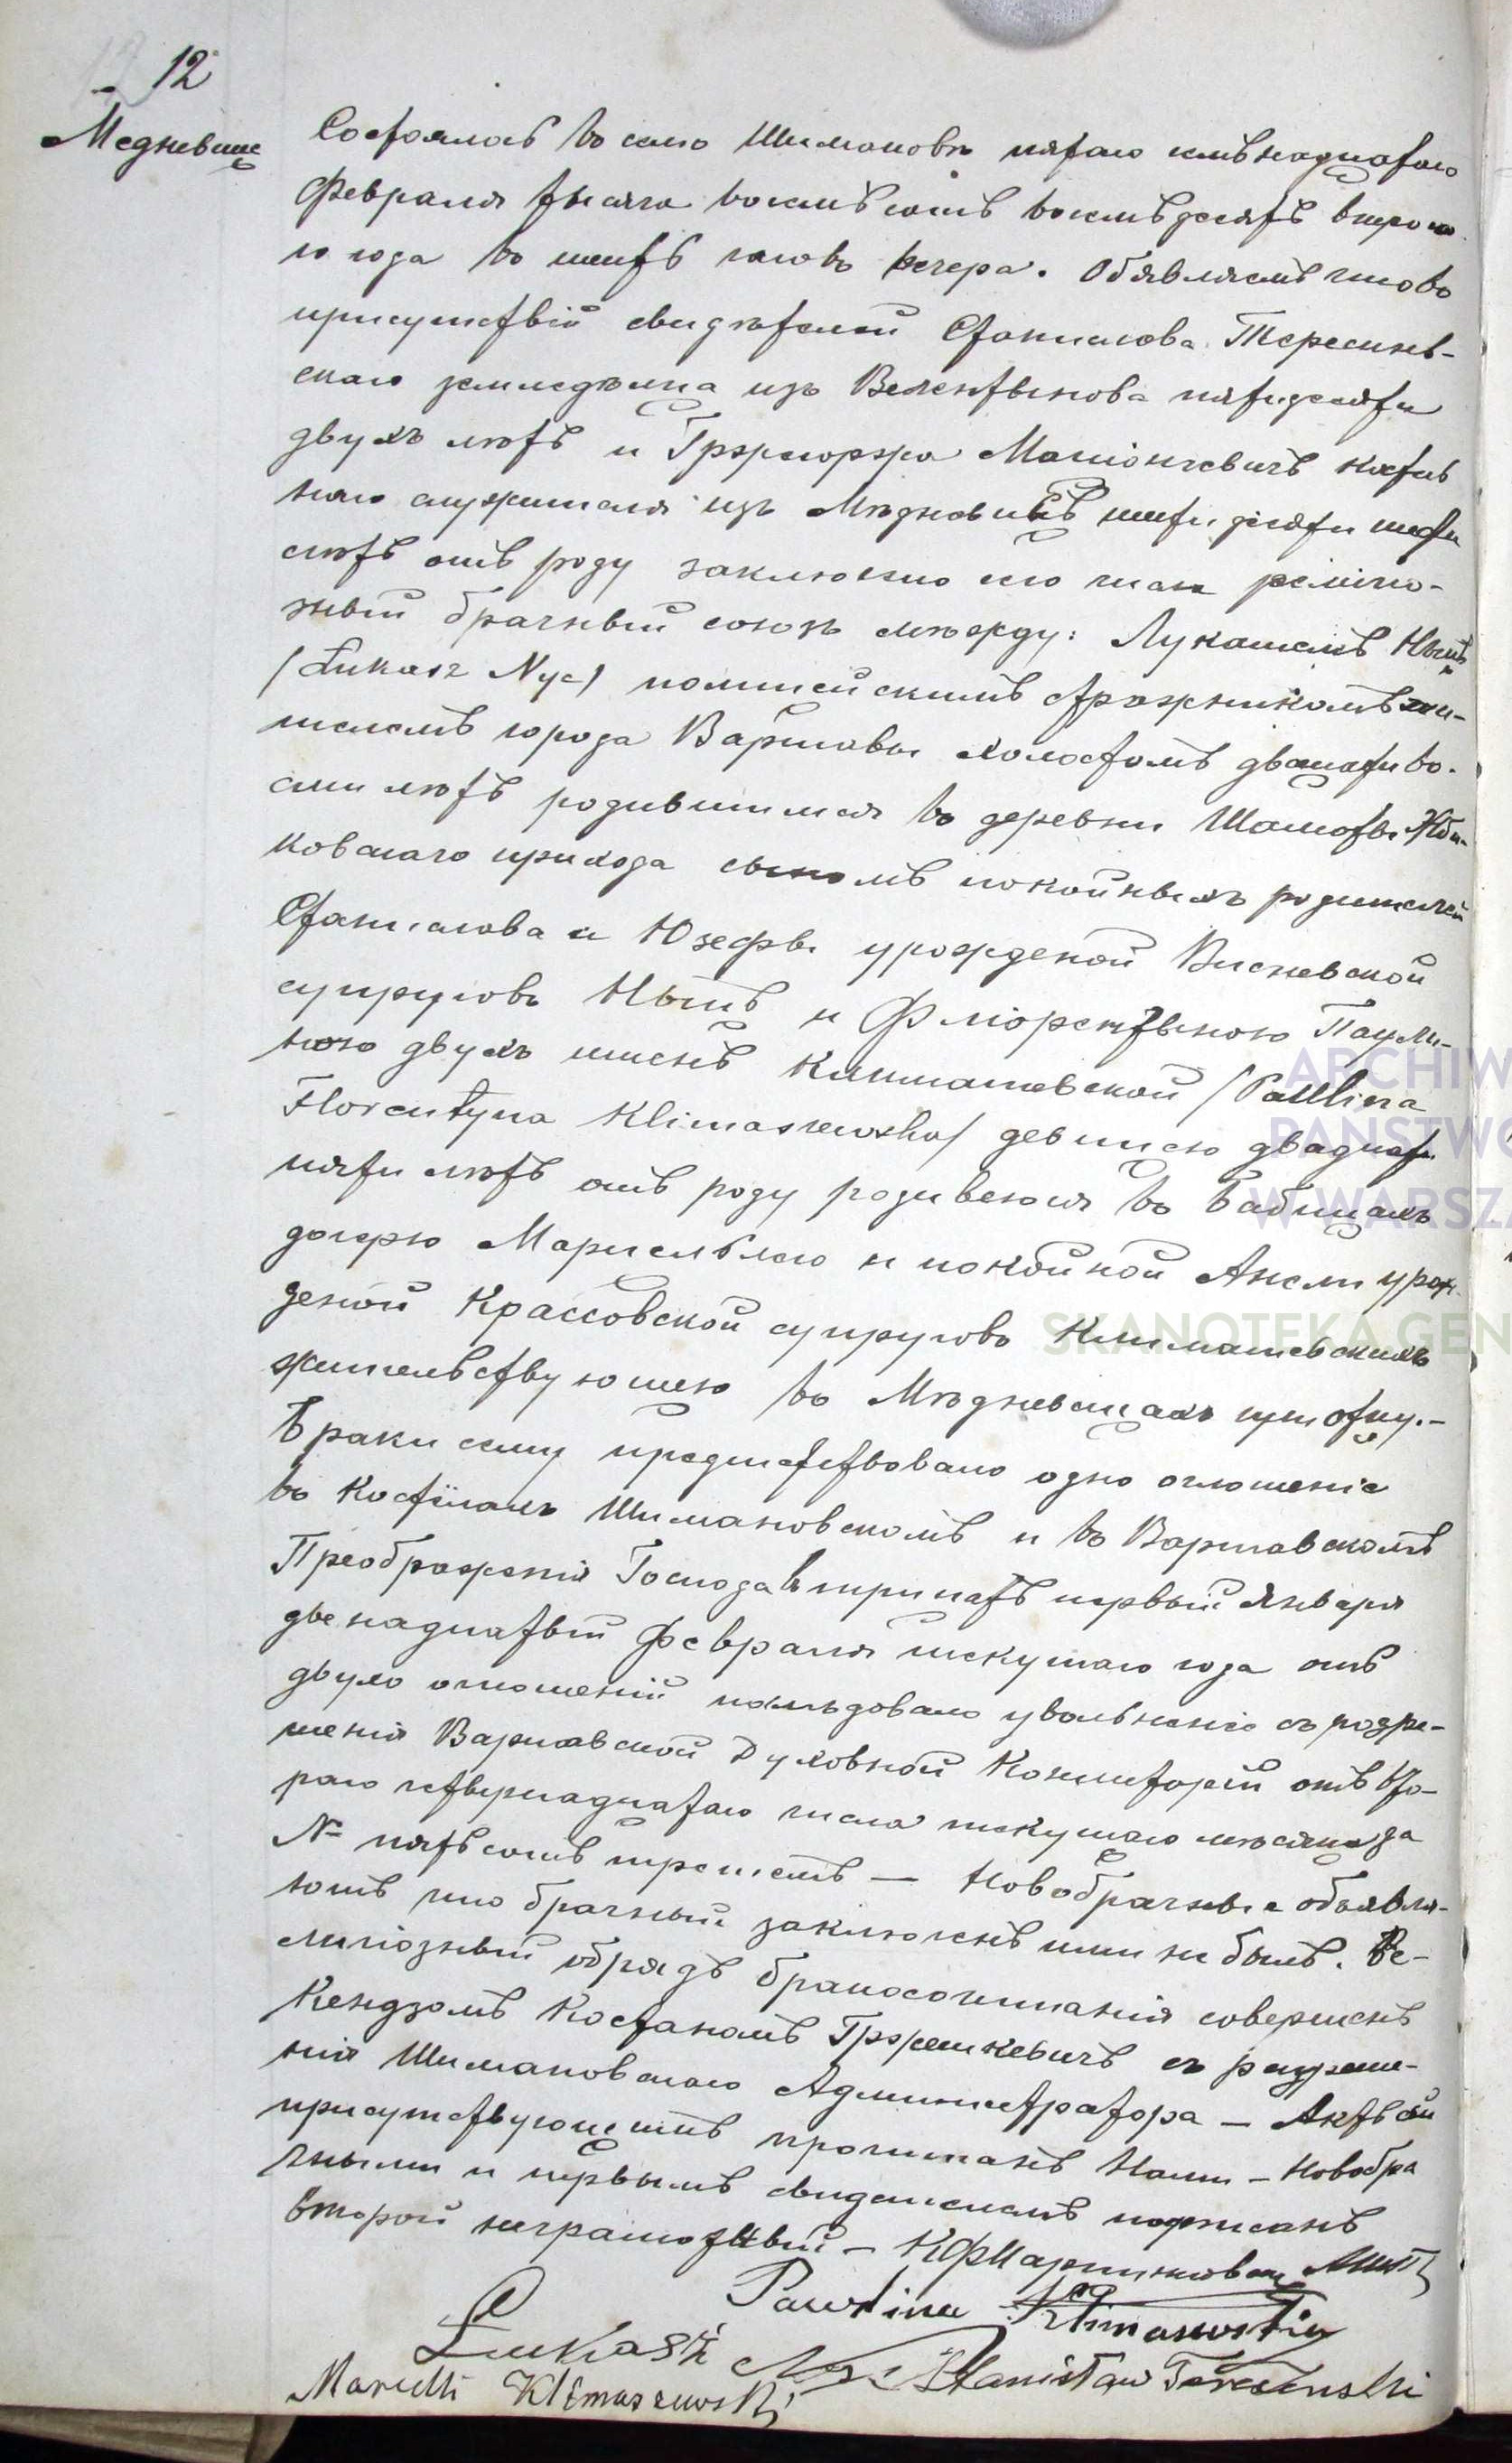 12
Медневице
Состоялось въ село Шимановъ пятаго надцатаго
Февраля тысяча восемьсотъ восемьдесятъ второ
го года въ шесть часовъ вечера. Объявляемъ что въ
присутствій свидѣтелей Станислава Тересинь-
скаго земледѣльца изъ Валентынова пятидесяти
двухъ лѣтъ и Гржегоржа Маціонгевичъ костель
наго служителя изъ Мѣдневицъ шестидесяти шести
лѣтъ отъ роду заключено сего числа религіо-
зный брачный союзъ между: Лукашемъ Ныцъ
/Łukasz Nyc/ полицейскимъ стражникомъ жи-
телемъ города Варшавы холостымъ двадцати во-
сми лѣтъ родившимся въ деревни Шамоты Жби-
ковскаго прихода сыномъ покойныхъ родителей
Станислава и Юзефы урожденой Висневской
супруговъ Ныцъ и Флорентыною Паули-
ною двухъ именъ Климашевской /Paullina
Florentyna Klimaszewska/ девицею двадцати
пяти лѣтъ отъ роду родивеюся въ Бабицахъ
дочерю Марцельяго и покойной Анели урож-
деной Крассовской супруговъ Климашевскихъ
жительствующею въ Мѣдневицахъ при отцу.-
Браки сему предшествовало одно оглошеніе
въ Костёлахъ Шимановскомъ и въ Варшавскомъ
Преображенія Господа тринать первый Января
двенадцатый Февраля текущаго года отъ
двухъ оглошеній послѣдовало увольненіе съ розре-
шенія Варшавской Духовной Консисторій отъ вто-
раго четвернадцатаго числа текущаго мѣсяца за
№ пятьсотъ третемъ — Новобрачные объявля-
ютъ что брачный заключенъ ими не былъ. Ре-
лигіозный обрядъ бракосочитанія совершенъ
Ксендзомъ Костаномъ Гржешкевичъ съ разреше-
нія Шимановскаго Администратора — Актъ сей
присутствующимъ прочитанъ Нами — Новобра
чными и первымъ свидетелемъ подписанъ
второй неграмотный —
Pawlina Klimaszewska
Łukasz Nyc Stanisław Teresinski
Marcelli Klimaszewski
ARCHIW
PAŃSTWO
W WARSZA
SKANOTEKA.GEN